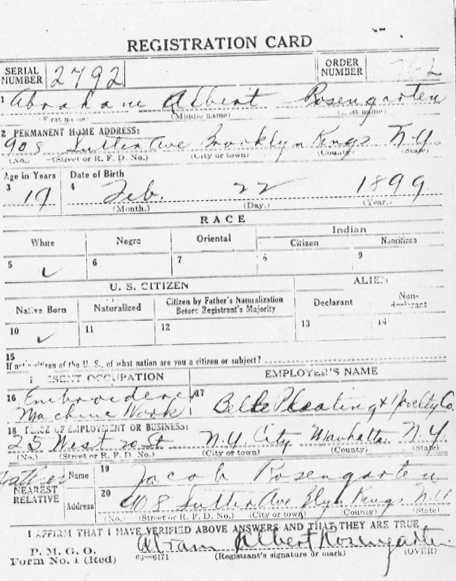 REGISTRATION CARD
SERIAL NUMBER 2792 ORDER NUMBER
1 Abraham Albert Rosengarten
(First name) (Middle name) (Last name)
2 PERMANENT HOME ADDRESS:
908 Sutter Ave Brooklyn Kings N.Y.
(No.) (Street or R. F. D. No.) (City or town) (County) (State)
Age in Years Date of Birth
3 19 4 Feb. 22 1899
(Month.) (Day.) (Year.)
RACE
White Negro Oriental Indian
Citizen Noncitizen
5 ✓ 6 7 8 9
U. S. CITIZEN ALIEN
Native Born Naturalized Citizen by Father's Naturalization Before Registrant's Majority Declarant Non-declarant
10 ✓ 11 12 13 14
15
If not a citizen of the U. S. of what nation are you a citizen or subject?
PRESENT OCCUPATION EMPLOYER'S NAME
16 Embroidery Machine Work 17 Belle Pleating & Novelty Co.
18 PLACE OF EMPLOYMENT OR BUSINESS:
25 West N.Y. City Manhattan N.Y
(No.) (Street or R. F. D. No.) (City or town) (County) (State)
Father Name 19 Jacob Rosengarten
NEAREST RELATIVE
Address 20 908 Sutter Ave Bklyn Kings N.Y
(No.) (Street or R. F. D. No.) (City or town) (County) (State)
I AFFIRM THAT I HAVE VERIFIED ABOVE ANSWERS AND THAT THEY ARE TRUE
P. M. G. O.
Form No. 1 (Red) Albert Rosengarten
(Registrant's signature or mark) (OVER)